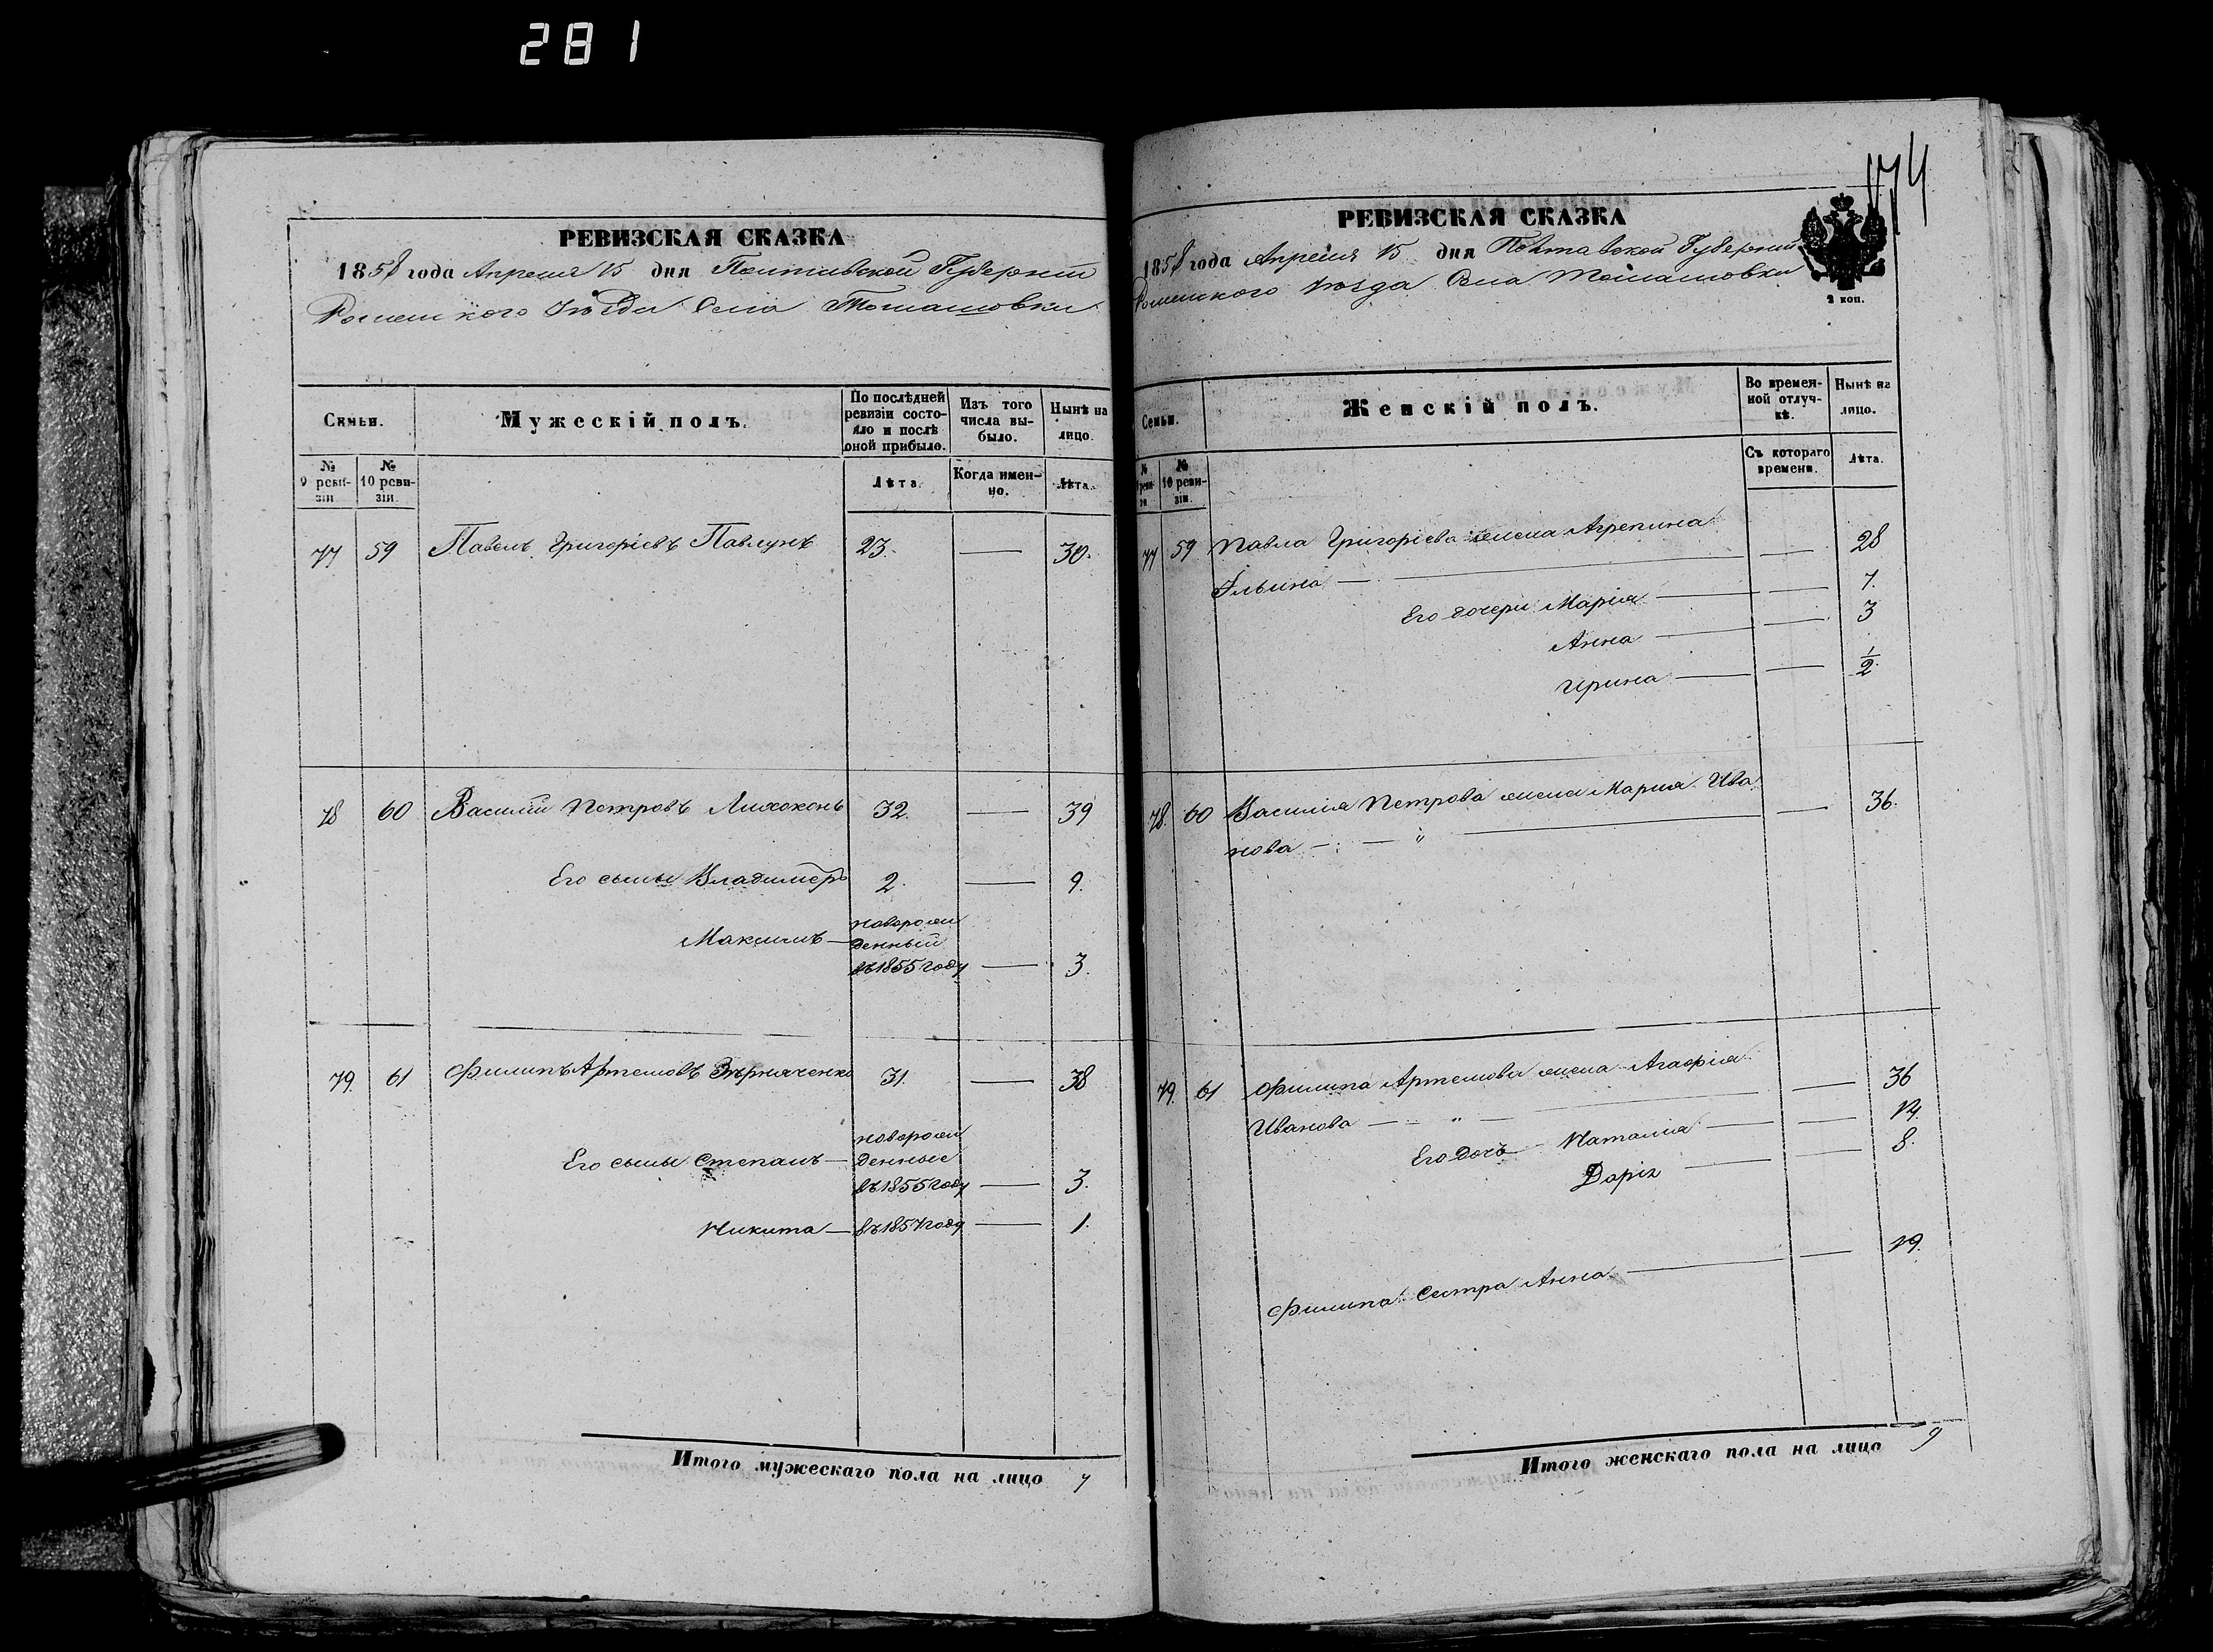 281
174
РЕВИЗСКАЯ СКАЗКА
1858 года Апреля 15 дня Полтавской Губернии
Роменского Уезда Села Томашовки
Семьи.
Мужескій полъ.
По послѣдней ревизіи состояло и послѣ оной прибыло.
Изъ того числа выбыло.
Нынѣ на лицо.
№ 9 ревизіи
№ 10 ревизіи.
Лѣта.
Когда именно.
Лѣта.
77 59 Павелъ Григоріевъ Павлунъ 23. — 30.
78 60 Василій Петровъ Лихоконь 32. — 39
Его сыны Владимеръ 2. — 9.
Максимъ — новорож
денный
въ 1855 году — 3.
79. 61 Филипъ Артемовъ 31. — 38
новорож
Его сыны Степанъ — денные
въ 1855 году — 3.
Никита — въ 1857 году — 1.
Итого мужескаго пола на лицо 7
РЕВИЗСКАЯ СКАЗКА
1858 года Апреля 15 дня Полтавской Губернии
Роменского Уезда Села Томашовки
2 коп.
Семьи.
Женскій полъ.
Во временной отлучкѣ.
Нынѣ на лицо.
№ 9 ревизіи
№ 10 ревизіи.
Съ котораго времени.
Лѣта.
77 59 Павла Григоріева жена Агрепина
Ильина — — 28
Его дочери Марія — — 7.
Анна — — 3
Ирина — — 1/2.
78. 60 Василія Петрова жена Мария Ива
нова — — " — — 36.
79. 61 Филипа Артемова жена Агафія
Иванова — " — — 36
Его дочь Наталія — — 14.
Дарія — — 8.
Филипа Сестра Анна — — 19.
Итого женскаго пола на лицо 9